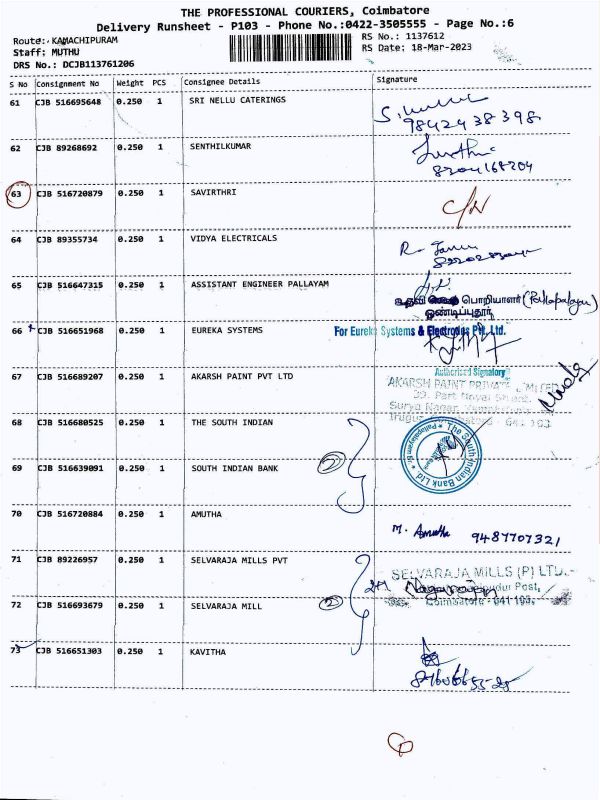 THE PROFESSIONAL COURIERS, Coimbatore
Delivery Runsheet - P103 - Phone No.:0422-3505555 - Page No.:6
Route: KAMACHIPURAM
RS No.: 1137612
Staff: MUTHU
RS Date: 18-Mar-2023
DRS No.: DCJB113761206
S No Consignment No Weight PCS Consignee Details Signature
61 CJB 516695648 0.250 1 SRI NELLU CATERINGS
9842438398
62 CJB 89268692 0.250 1 SENTHILKUMAR
8204168204
63 CJB 516720879 0.250 1 SAVIRTHRI C/N
64 CJB 89355734 0.250 1 VIDYA ELECTRICALS
65 CJB 516647315 0.250 1 ASSISTANT ENGINEER PALLAYAM
பொறியாளர் (Pallapalayam)
ஒண்டிப்புதூர்
66 CJB 516651968 0.250 1 EUREKA SYSTEMS For Eureka Systems & Electronics Pvt. Ltd.
Authorised Signatory
67 CJB 516689207 0.250 1 AKARSH PAINT PVT LTD AKARSH PAINT PRIVATE LIMITED
Surya Nagar
68 CJB 516680525 0.250 1 THE SOUTH INDIAN
The South Indian Bank Ltd.
69 CJB 516639091 0.250 1 SOUTH INDIAN BANK 2
70 CJB 516720884 0.250 1 AMUTHA M. Amutha 9487707321
71 CJB 89226957 0.250 1 SELVARAJA MILLS PVT
SELVARAJA MILLS (P) LTD.
Post,
72 CJB 516693679 0.250 1 SELVARAJA MILL 2 Coimbatore - 641 103.
73 CJB 516651303 0.250 1 KAVITHA